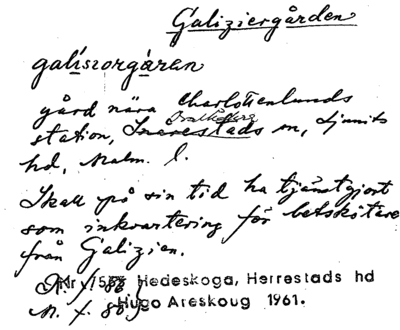 Galiziergården
galíszorgáran
gård nära Charlottenlunds
station, Snårestads sn, Ljunits
hd, Malm. l.
Skall på sin tid ha tjänstgjort
som inkvartering för betskötare
från Galizien.
Hedeskoga, Herrestads hd
Hugo Areskoug 1961.